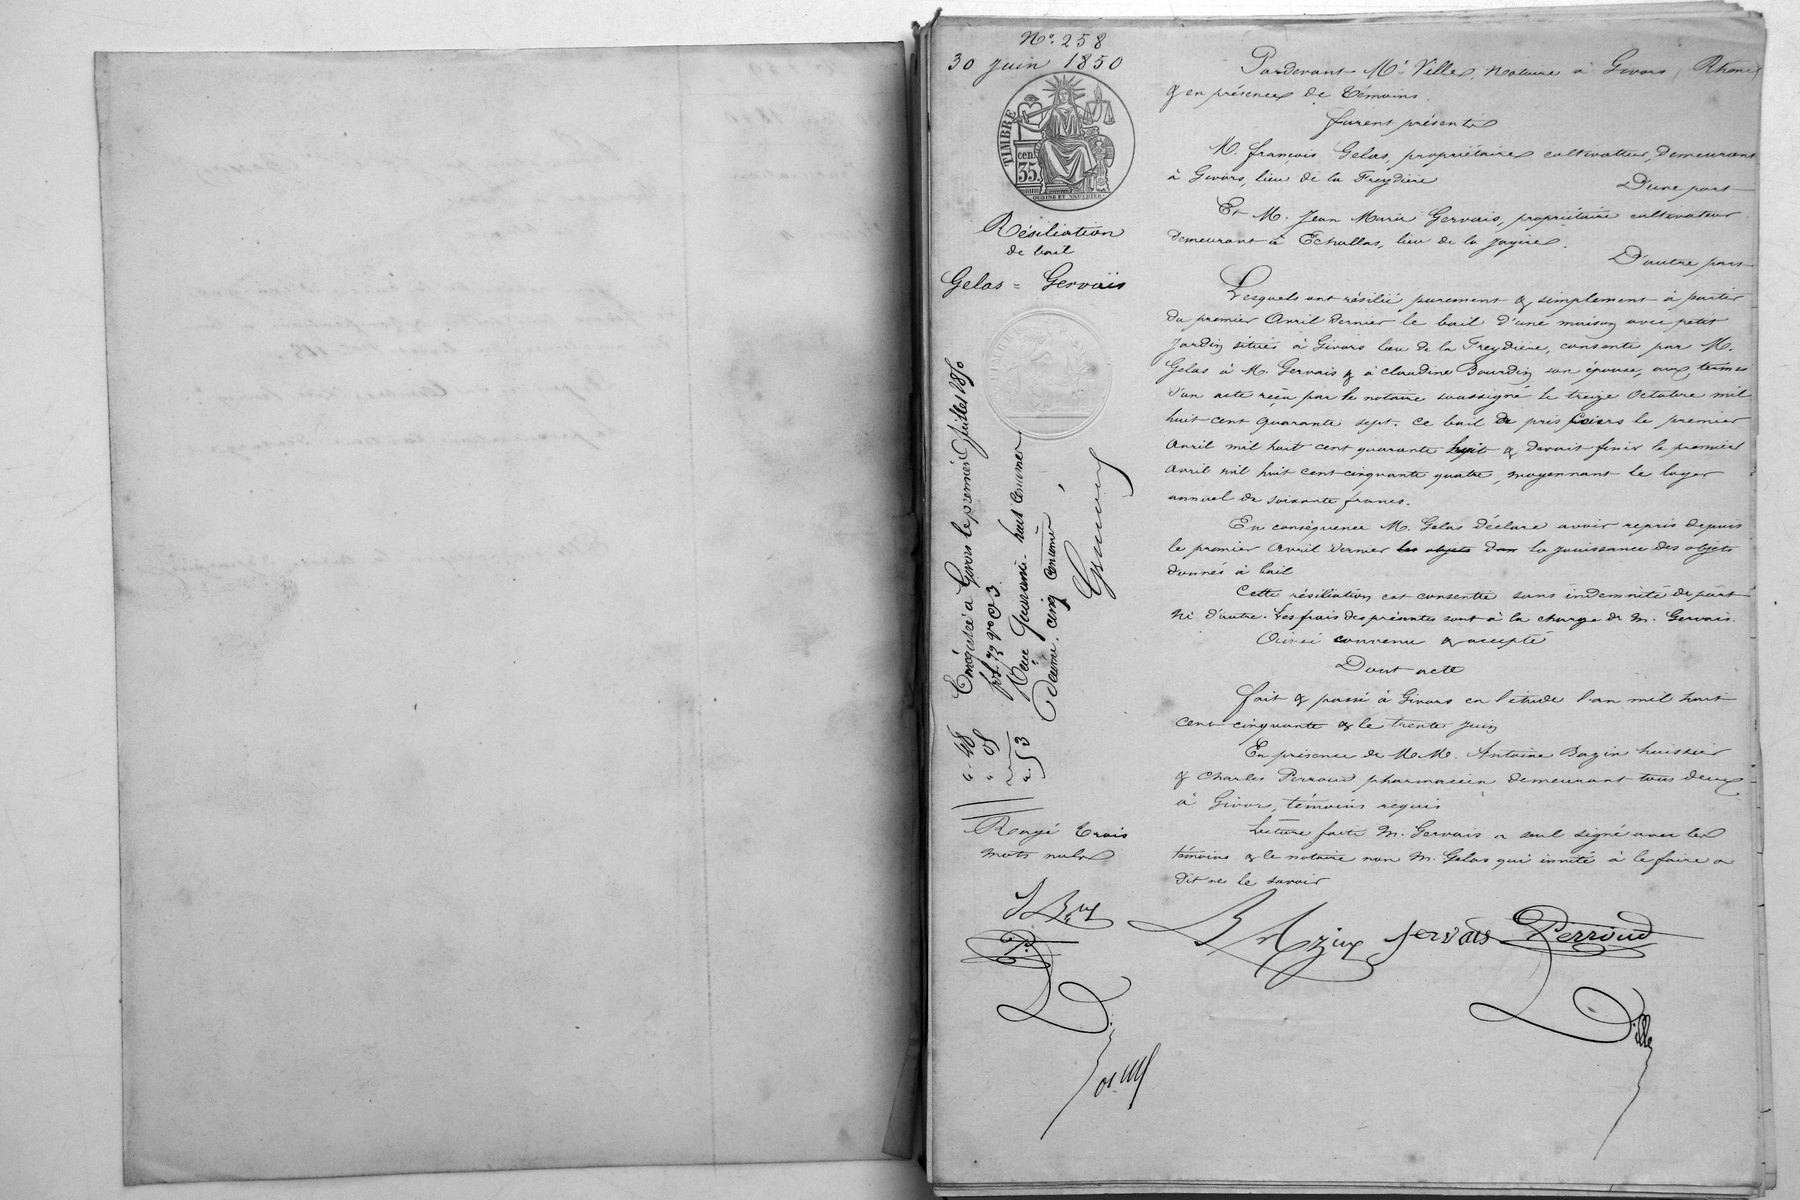 N° 258
30 juin 1850
TIMBRE
cen.
35.
OUDINÉ ET VAUTHIER
Résiliation
de bail
Gelas = Gervais
Enregistré à Givors le premier Juillet 1850
f° 73 v° C 3.
Reçu quarante huit centimes
Décime cinq centimes
48
05
53
Rayé trois
mots nuls
Pardevant Me Ville, Notaire à Givors, Rhône
& en présence de témoins.
furent présents
M. François Gelas, propriétaire cultivateur, demeurant
à Givors, lieu de la Freydière
D'une part
Et M. Jean Marie Gervais, propriétaire cultivateur
demeurant à Echallas, lieu de la
D'autre part
Lesquels ont résilié purement & simplement à partir
du premier Avril dernier le bail d'une maison avec petit
Jardin situés à Givors lieu de la Freydière, consenti par M.
Gelas à M. Gervais & à Claudine Bourdin son épouse, aux termes
d'un acte reçu par le notaire soussigné le treize Octobre mil
huit cent quarante sept. Ce bail a pris cours le premier
Avril mil huit cent quarante huit & devait finir le premier
Avril mil huit cent cinquante quatre, moyennant le loyer
annuel de soixante francs.
En conséquence M. Gelas déclare avoir repris depuis
le premier Avril dernier les objets dans la jouissance des objets
donnés à bail
Cette résiliation est consentie sans indemnité de part
ni d'autre. Les frais des présentes sont à la charge de M. Gervais.
Ainsi convenu & accepté
Dont acte
fait & passé à Givors en l'étude l'an mil huit
cent cinquante & le trente juin
En présence de M.M. Antoine Bazin huissier
& Charles Perroud pharmacien demeurant tous deux
à Givors, témoins requis
Lecture faite M. Gervais a seul signé avec les
témoins & le notaire non M. Gelas qui invité à le faire a
dit ne le savoir
Bazin gervais Perroud
Ville